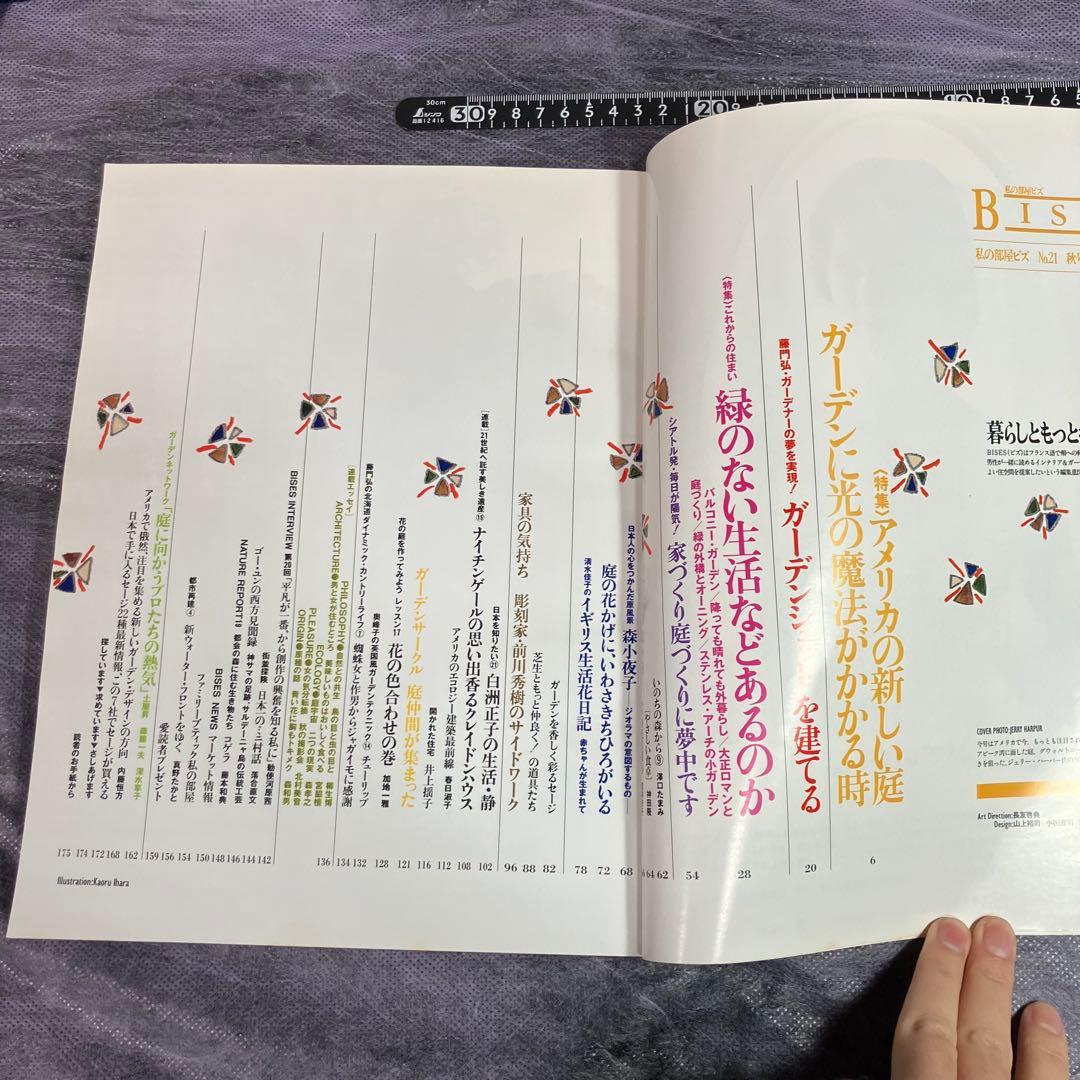 30cm
シンワ
品番12416
30 9 8 7 6 5 4 3 2 1 20 9 8
10 9 8 7 6 5
私の部屋ビズ
BIS
私の部屋ビズ No.21 秋
暮らしともっと
BISES(ビズ)はフランス語で
COVER PHOTO:JERRY HARPUR
Art Direction:長友啓典
〈特集〉アメリカの新しい庭
ガーデンに光の魔法がかかる時
6
藤門弘・ガーデナーの夢を実現!
を建てる
20
〈特集〉これからの住まい
緑のない生活などあるのか
バルコニー・ガーデン/降っても晴れても外暮らし/大正ロマンと
庭づくり/緑の外構とオーニング/ステンレス・アーチの小ガーデン
28
シアトル発・毎日が陽気! 家づくり庭づくりに夢中です
54
いのちの森から⑨ 澤口たまみ
62
64
日本人の心をつかんだ原風景 森小夜子 ジオラマの意図するもの
68
庭の花かげに、いわさきちひろがいる
72
清水佳子のイギリス生活花日記 赤ちゃんが生まれて
78
ガーデンを香しく彩るセージ
82
芝生ともっと仲良く/の道具たち
88
家具の気持ち 彫刻家・前川秀樹のサイドワーク
96
日本を知りたい㉑ 白洲正子の生活・静
102
[連載]21世紀へ託す美しき遺産⑮ ナイチンゲールの思い出香るクレイドンハウス
108
アメリカのエコロジー建築最前線 春日淑子
112
開かれた住宅 井上搖子
116
ガーデンサークル 庭仲間が集まった
121
花の庭を作ってみよう レッスン17 花の色合わせの巻 加地一雅
128
奥峰子の英国風ガーデンテクニック⑭ チューリップ
132
藤門弘の北海道ダイナミック・カントリーライフ⑦ 蜘蛛女と作男からジャガイモに感謝
134
[連載エッセイ]
136
PHILOSOPHY●自然との共生 鳥の目と虫の目と 柳生博
ARCHITECTURE●男と女が住むところ 美味しいものはおいしく食べる 宮脇檀
ECOLOGY●庭宇宙 二つの現実 森孝之
PLEASURE●女の気分転換 秋の撮影会 北村美音
ORIGIN●原種の話 青い花に胸もトキメク 森和男
BISES INTERVIEW 第20回 「平凡が一番、から創作の興奮を知る私に」 勅使河原茜
142
街並探険 日本一の三村話 落合直文
144
ゴー・ユンの西方見聞録 神サマの足跡、サルデーニャ島の伝統工芸
146
NATURE REPORT19 都会の森に住む生き物たち コゲラ 藤本和典
148
BISES NEWS マーケット情報
150
ファミリーブティック 私の部屋
154
都市再建④ 新ウォーター・フロントをゆく 真野たかと
156
愛読者プレゼント
159
ガーデンネットワーク「庭に向かうプロたちの熱気」
アメリカで俄然、注目を集める新しいガーデン・デザインの方向 内藤恒方
162
日本で手に入るセージ22種最新情報、この7社でセージが買える
168
探しています▼求めています▼さしあげます
172 174
読者のお手紙から
175
Illustration:Kaoru Ihara